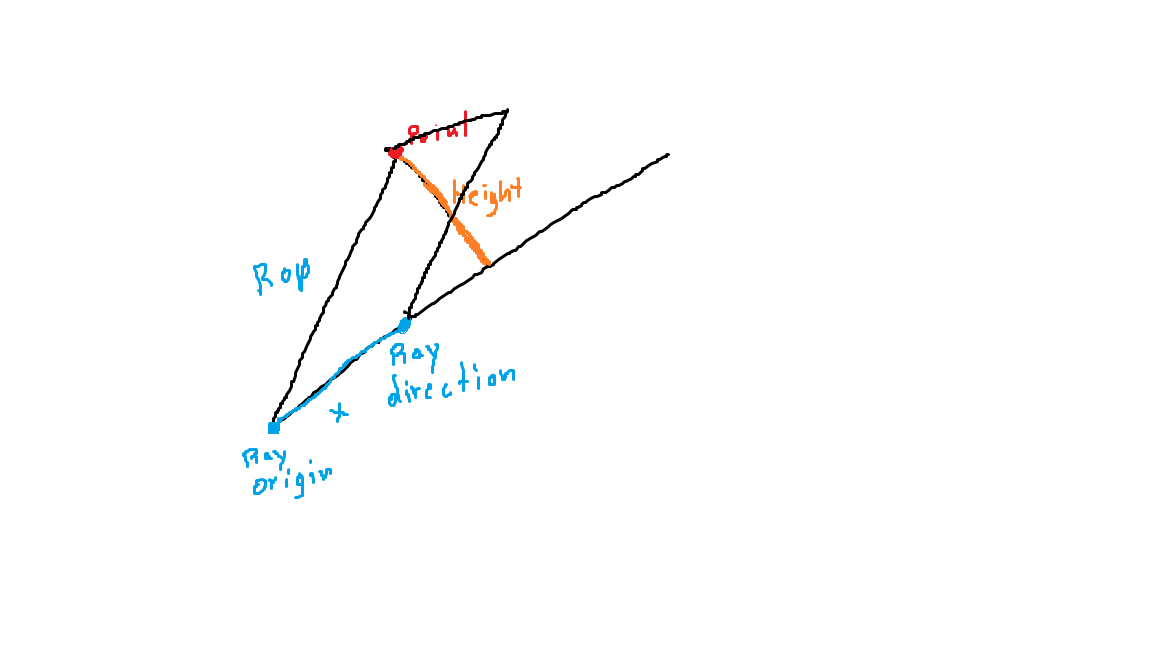 Point
Height
Rop
Ray
direction
x
Ray
origin